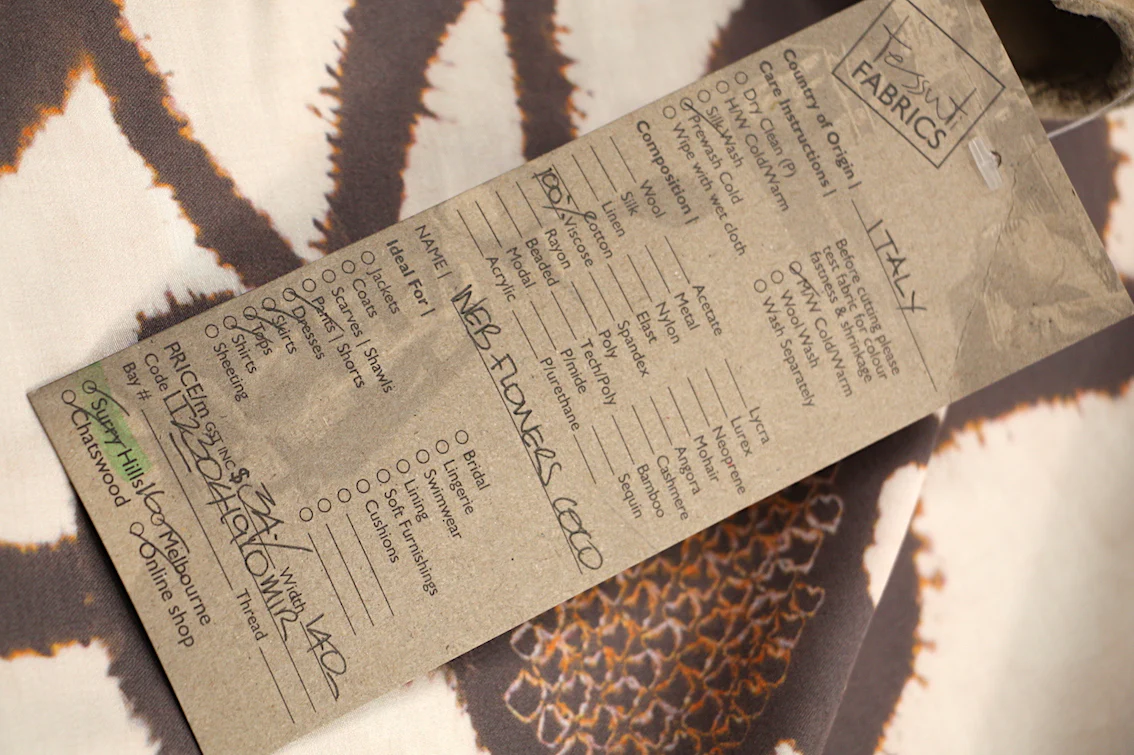 tessuti
FABRICS
Country of Origin | ITALY
Care Instructions |
Dry Clean (P)
H/W Cold/Warm
Silk Wash
Prewash Cold
Wipe with wet cloth
Before cutting please
test fabric for colour
fastness & shrinkage
M/W Cold/Warm
Wool Wash
Wash Separately
Composition |
Wool
Silk
Linen
Cotton
100% Viscose
Rayon
Beaded
Modal
Acrylic
Acetate
Metal
Nylon
Elast
Spandex
Poly
Tech/Poly
P/mide
P/urethane
Lycra
Lurex
Neoprene
Mohair
Angora
Cashmere
Bamboo
Sequin
NAME | FLOWERS COCO
Ideal For |
Jackets
Coats
Scarves | Shawls
Pants | Shorts
Dresses
Skirts
Tops
Shirts
Sheeting
Bridal
Lingerie
Swimwear
Lining
Soft Furnishings
Cushions
PRICE/m GST INC $ Width 140
Code
Bay # Thread
Surry Hills Melbourne
Chatswood Online shop